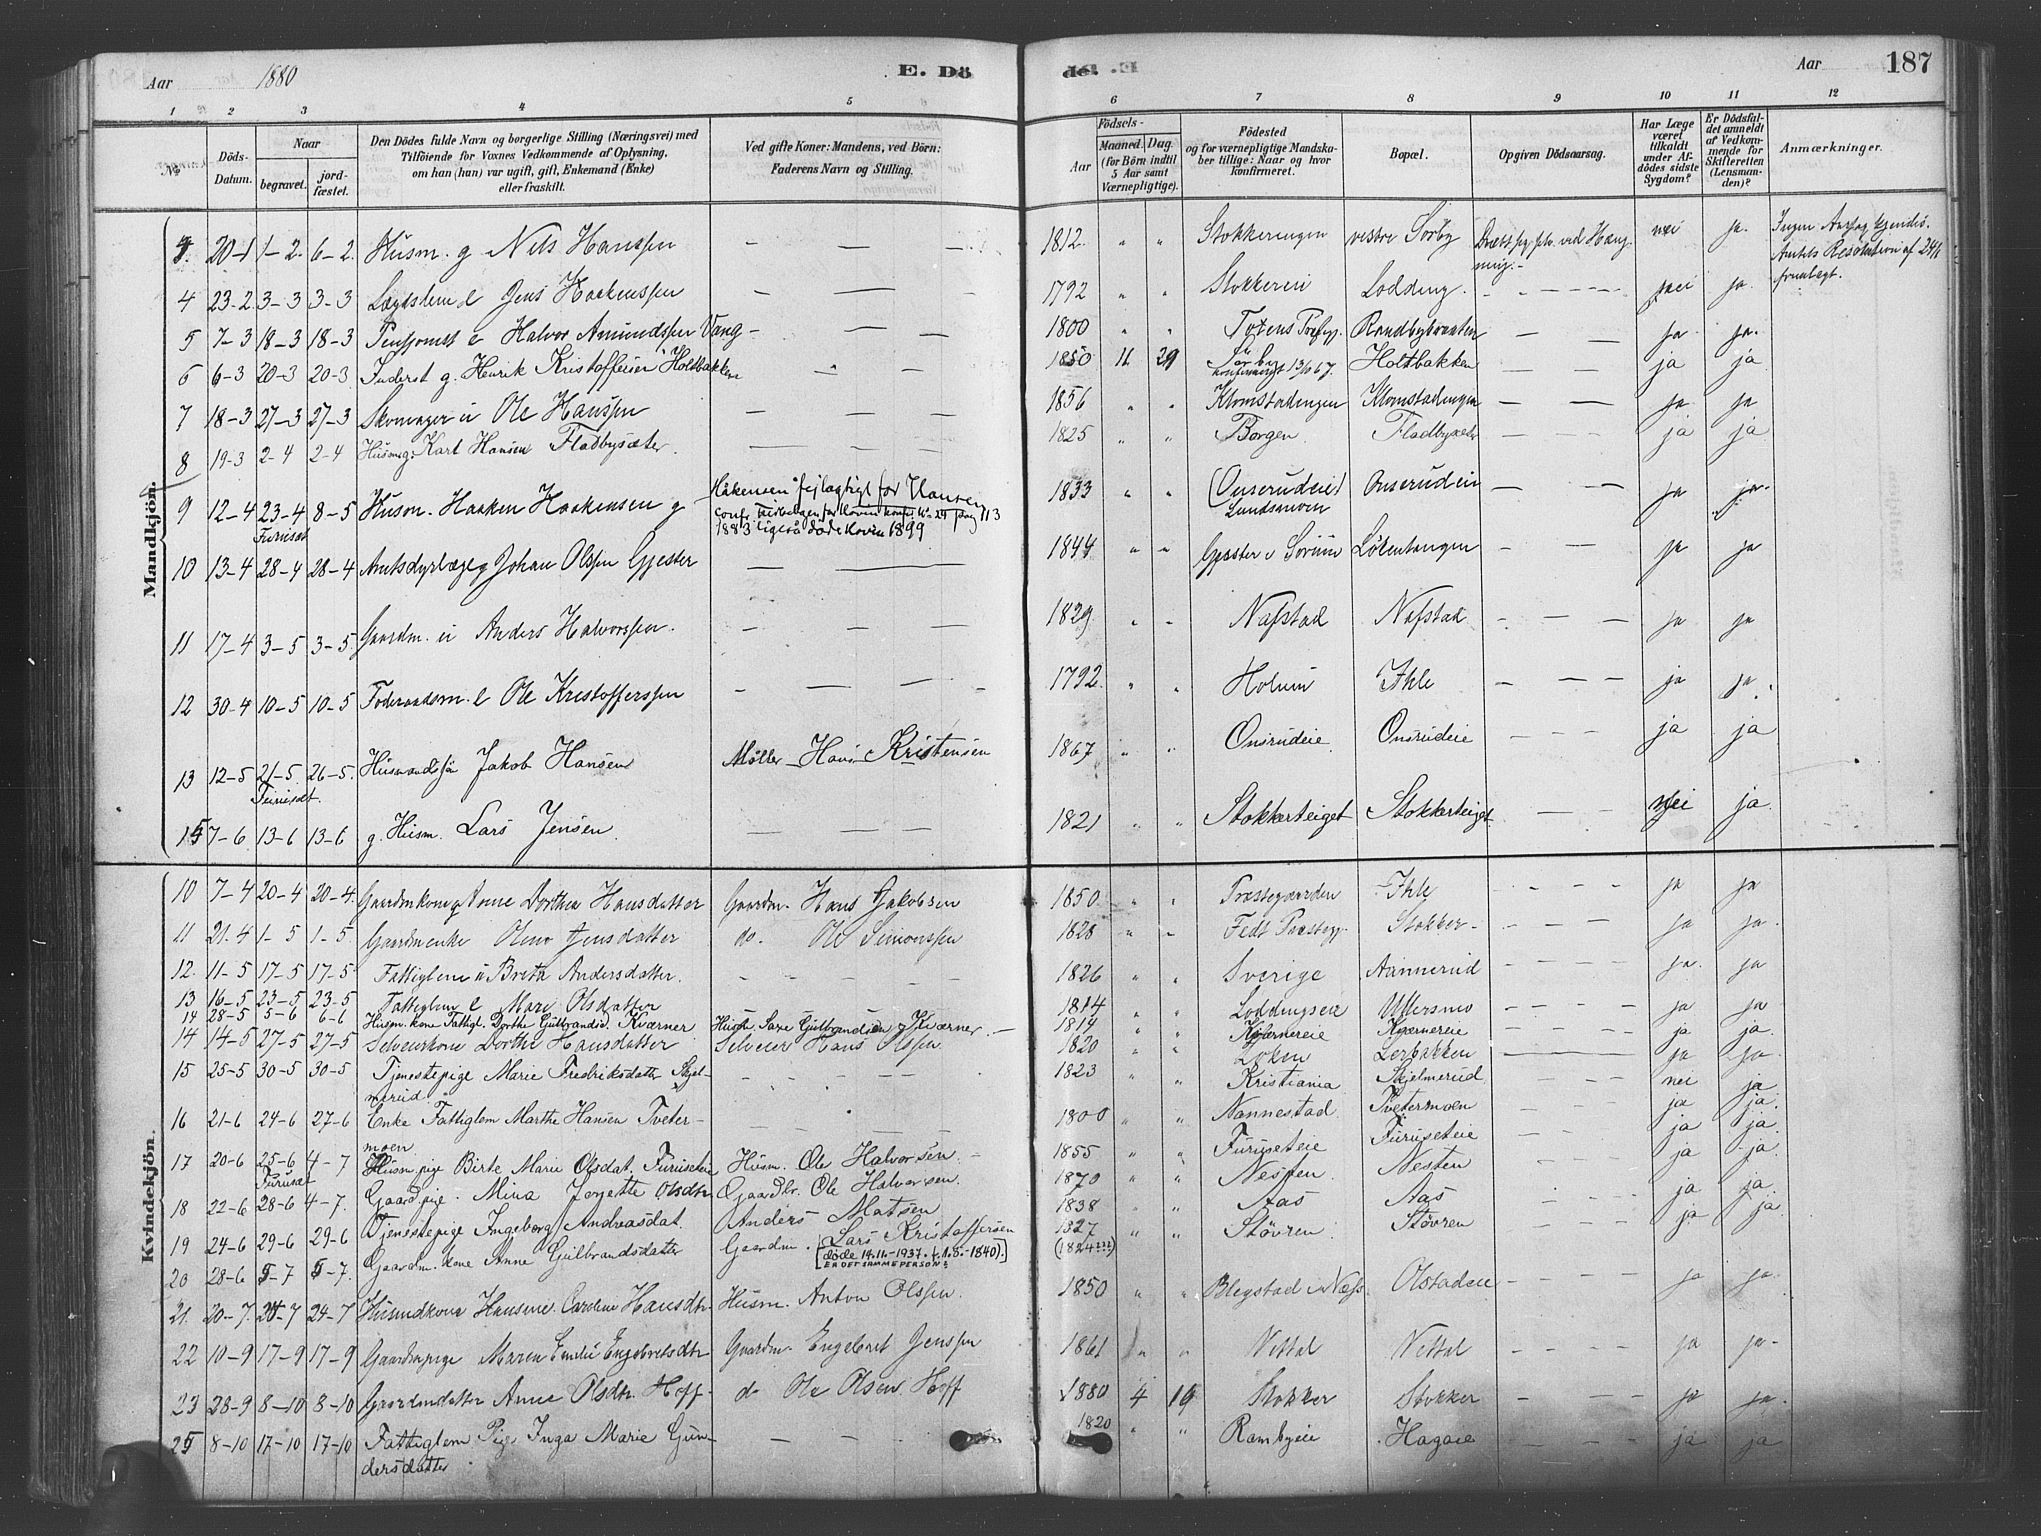 Aar 1880 E. Dö
de. Aar 187
1 2 3 4 5 6 7 8 9 10 11 12
No Döds-Datum. Naar begravet. jord-fæstet. Den Dödes fulde Navn og borgerlige Stilling (Næringsvei) med Tilföiende for Voxnes Vedkommende af Oplysning, om han (hun) var ugift, gift, Enkemand (Enke) eller fraskilt. Ved gifte Koner: Mandens, ved Börn: Faderens Navn og Stilling. Födsels- Aar Maaned. Dag. (for Börn indtil 5 Aar samt Værnepligtige). Födested og for værnepligtige Mandskaber tillige: Naar og hvor konfirmeret. Bopæl. Opgiven Dödsaarsag. Har Læge været tilkaldt under Afdödes sidste Sygdom? Er Dödsfaldet anmeldt af Vedkommende for Skifteretten (Lensmanden)? Anmærkninger.
Mandkjön.
20-1 1-2 6-2 Husm. g Nils Hansen — — — 1812 " " Stokkeringen vestre Sörby nei ja. Ingen
4 23-2 3-3 3-3 Lægdslem e Jens Haakensen — — — 1792 " " Stokkerei Lodding — nei ja
5 7-3 18-3 18-3 e Halvor Amundsen Vang — — — 1800 " " Totens Præstegj. Randby — — ja ja.
6 6-3 20-3 20-3 Inderst g. Henrik Kristoffersen Holtbakken " 1850 11 29 Sörby konfirmeret 13/10 67. Holtbakken ja ja
7 18-3 27-3 27-3 Skomager u Ole Hansen — — — 1856 " " Klomstadengen Klomstadengen — — ja ja
8 19-3 2-4 2-4 Husm. g. Karl Hansen Fladbysæter. — — — 1825 " " Borgen Fladbysæter — — ja ja
9 12-4 23-4 Furuset 8-5 Husm. Haaken Haakensen g — Håkensen fejlagtigt for Hansen 1883 ligeså döde Hovin 1899 1833 " " (Onsrudeie) Lundsmoen Onsrudeie — — ja ja.
10 13-4 28-4 28-4 Amtsdyrlæge g Johan Olsen Gjester — — 1844 " " Gjester i Sörum Lökentangen — — ja ja
11 17-4 3-5 3-5 Gaardm. u Anders Halvorsen. — — — 1829 " " Nafstad Nafstad — — — ja ja
12 30-4 10-5 10-5 Föderaadsm. e Ole Kristoffersen — — — 1792 " " Holum Ihle — — — ja ja.
13 12-5 21-5 Furuset. 26-5 Husmandssön Jakob Hansen Möller Hans Kristensen 1867 " " Onsrudeie Onsrudeie — — — ja ja
15 7-6 13-6 13-6 g. Husm. Lars Jensen. — — — 1821 " " Stokkerteiget Stokkerteiget — — nei ja
Kvindekjön.
10 7-4 20-4 20-4 Gaardmkone g Anne Dorthea Hansdatter Gaardm. Hans Jakobsen 1850 " " Præstegaarden Ihle — — — ja ja
11 21-4 1-5 1-5 Gaardmenke Oline Jensdatter do. Ole Simonsen 1828 " " Fedt Præstegj. Stokker — — ja ja
12 11-5 17-5 17-5 Fattiglem u Brita Andersdatter — — — 1826 " " Sverige Aannerud — — — ja ja
13 16-5 23-5 23-5 Fattiglem e Mari Olsdatter 1814 " " Loddingseie Ullersmo — — ja ja
14 28-5 5-6 6-6 Husm. kone Fattigl. Dorthe Gulbrandsd. Kværner Husm. Gulbrandsen Kværner — 1814 " " Kværnereie Kværnereie ja ja
14 14-5 27-5 27-5 Selveierkone Dorthe Hansdatter Selveier Hans Olsen 1820 " " Löken Lerbakken — — — ja ja.
15 25-5 30-5 30-5 Tjenestepige Marie Fredriksdatter Skjelmerud — — — 1823 " " Kristiania Skjelmerud — — — nei ja
16 21-6 24-6 27-6 Enke Fattiglem Marthe Hansen Tvetermoen — — — 1800 " " Nannestad Tvetermoen — — — ja ja.
17 20-6 25-6 Furuset 4-7 Husm. pige Birte Marie Olsdat. Furuseteie Husm. Ole Halvorsen. 1855 " " Furuseteie Furuseteie ja ja.
18 22-6 28-6 4-7. Gaardpige. Mina Jorgette Olsdtr Gaardbr. Ole Halvorsen. 1870 " " Nesten Nesten ja ja.
19 24-6 29-6 29-6 Tjenestepige Ingeborg Andreasdat. Anders Matsen 1838 " " Aas Aas ja ja
20 28-6 5-7 5-7. Gaardm. kone Anne Gulbrandsdatter Gaardm. Lars Kristoffersen [döde 14.11.-1937. f. 1.8.-1840). ER DET SAMME PERSON? 1827 (1824 ???) " " Stövren Stövren ja ja
21. 20-7. 24-7 24-7 Husmdkone Hansine Caroline Hansdtr. Husm. Anton Olsen. 1850 " " Blegstad i Næs Olstadeie — — — ja ja.
22 10-9 17-9 17-9 Gaardmpige Maren Emilie Engebretsdtr Gaardm. Engebret Jensen 1861 " " Nettal Nettal — — — ja ja
23 28-9 8-10 8-10 Gaardmdatter Anne Olsdtr. Hoff do Ole Olsen Hoff 1880 4 19 Stokker Stokker — — — ja ja.
25 8-10 17-10 17-10 Fattiglem Pige Inga Marie Gundersdatter — — — 1820 " " Rambyeie Hagaeie — — — ja ja